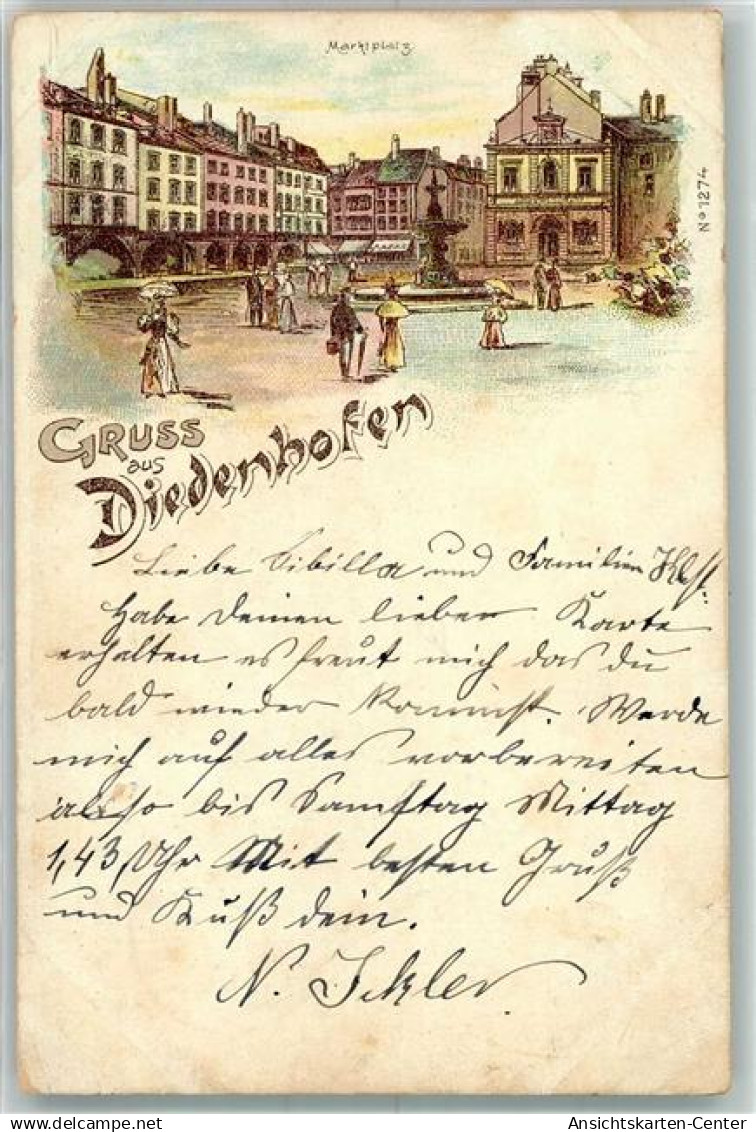 Marktplatz
No 1274
GRUSS
aus
Diedenhofen
Liebe Sibilla und Familien
Habe Deinen lieben Karte
erhalten es freut mich das du
bald wieder kommst. Werde
mich auf alles vorbereiten
also bis Samstag Mittag
1,43, Uhr Mit besten Gruß
und Kuß dein.
N. Ickler
Ansichtskarten-Center